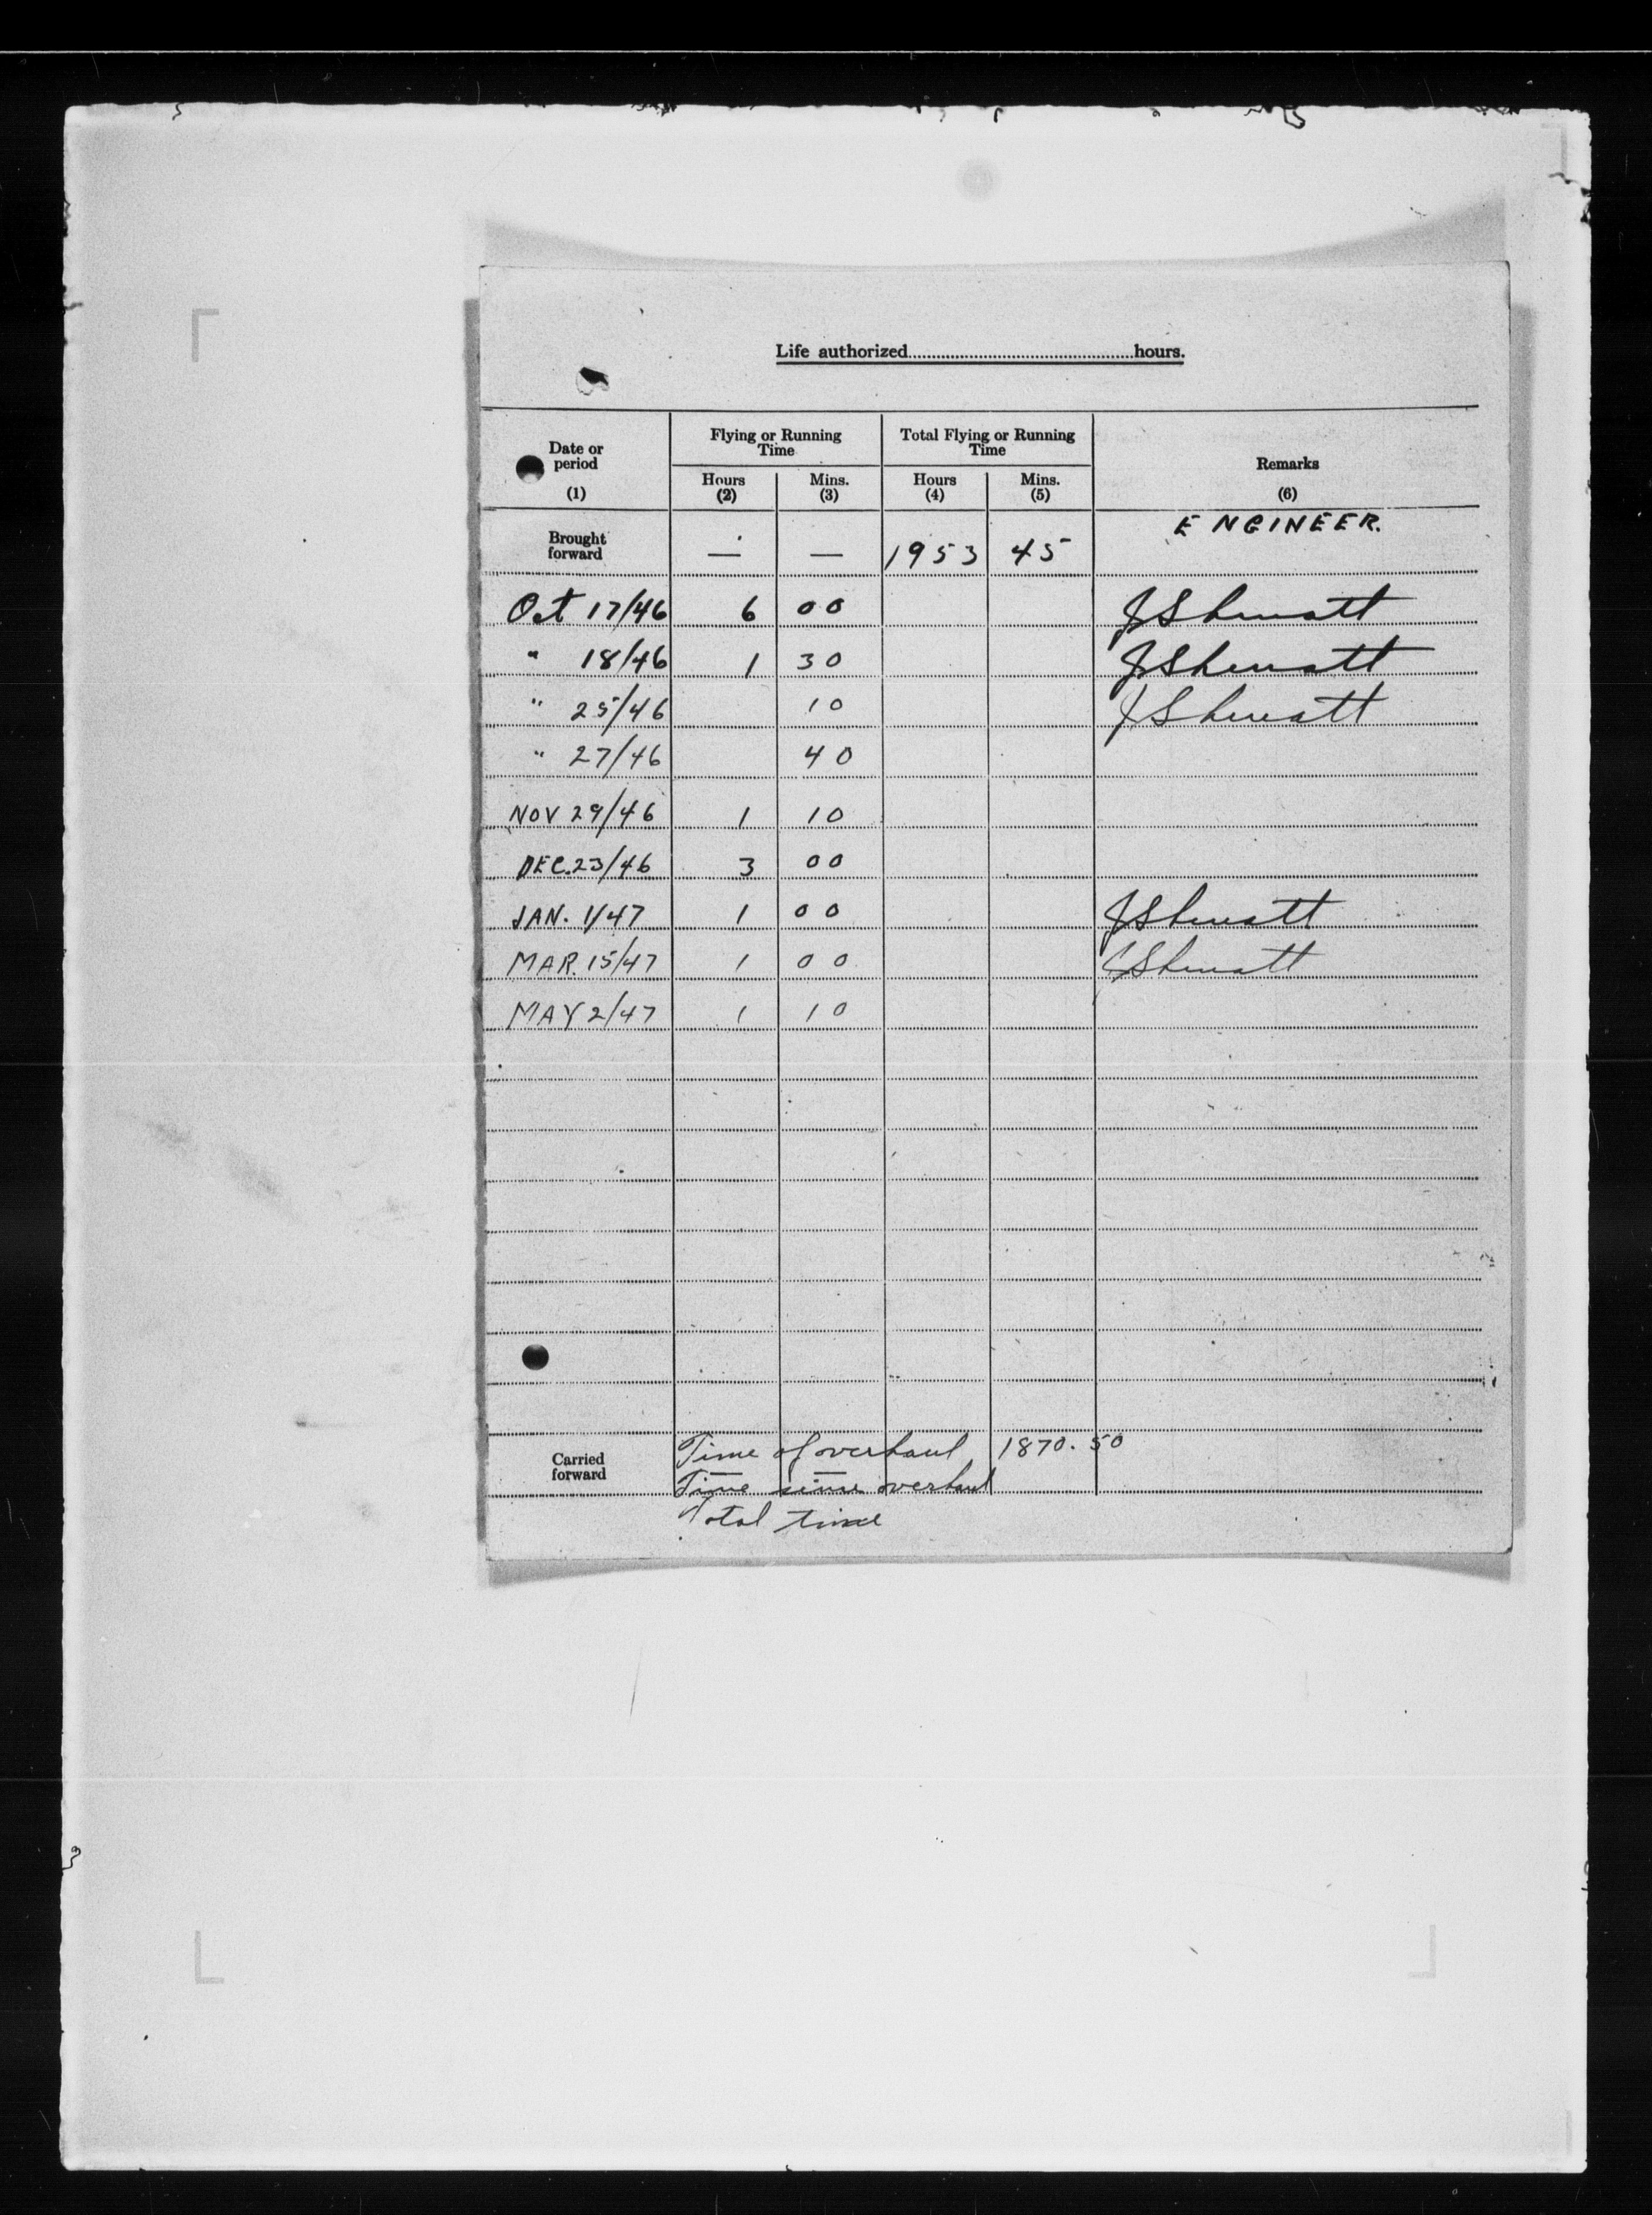 Life authorized..........hours.
Date or period (1) Flying or Running Time Total Flying or Running Time Remarks (6)
Hours (2) Mins. (3) Hours (4) Mins. (5)
ENGINEER.
Brought forward — — 1953 45
Oct 17/46 6 00
" 18/46 1 30
" 25/46 10
" 27/46 40
NOV 29/46 1 10
DEC. 23/46 3 00
JAN. 1/47 1 00
MAR. 15/47 1 00
MAY 2/47 1 10
Carried forward Time of overhaul 1870.50
Time since overhaul
Total time